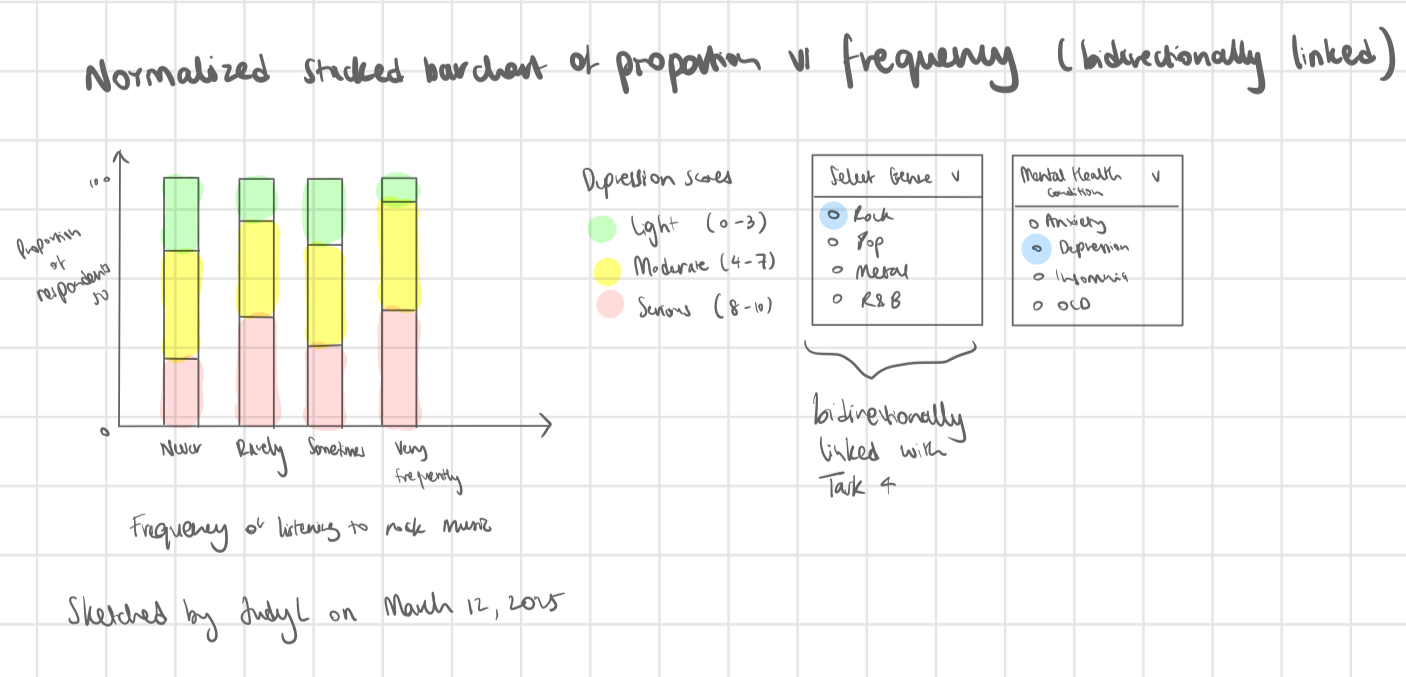 Normalized stacked barchart of proportion vs frequency (bidirectionally linked)
100
Proportion
of
respondents
50
0
Never Rarely Sometimes Very
frequently
Frequency of listening to rock music
Depression scores
Light (0-3)
Moderate (4-7)
Serious (8-10)
Select Genre v
Rock
Pop
Metal
R&B
Mental Health v
Condition
Anxiety
Depression
Insomnia
OCD
bidirectionally
linked with
Task 4
Sketched by JudyL on March 12, 2025